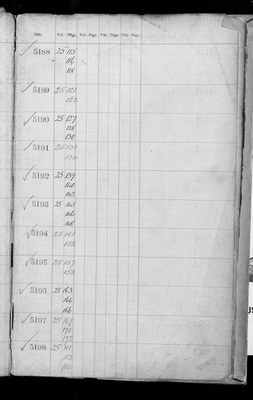 Vol. Page. Vol. Page. Vol. Page. Vol. Page. Vol. Page.
5188 25 115
116
118
5189 25 121
122
5190 25 127
128
130
5191 25
5192 25 139
140
142
5193 25 145
146
148
5194 25 151
152
5195 25 157
158
5196 25 163
164
166
5197 25 169
170
172
5198 25